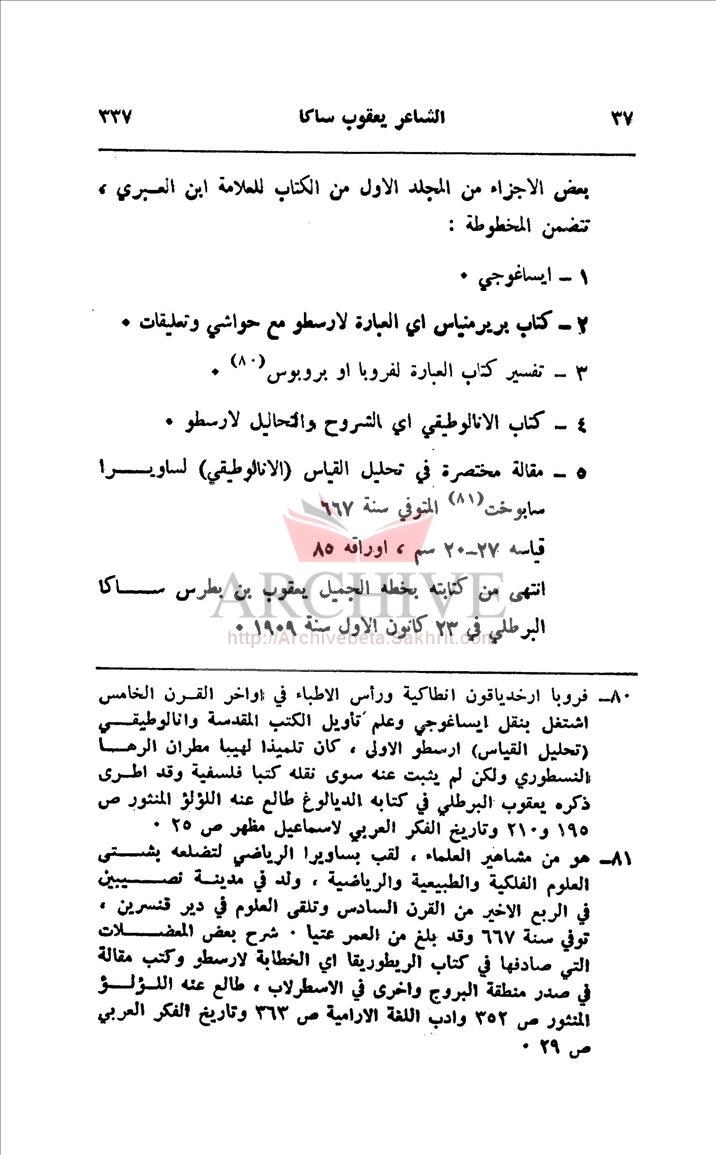 ٣٧ الشاعر يعقوب ساكا ٣٣٧
بعض الاجزاء من المجلد الاول من الكتاب للعلامة ابن العـبري ،
تتضمن المخطوطة :
١ ـ ايساغوجي ٠
٢ ـ كتاب بريرمنياس اي العبارة لارسطو مع حواشي وتعليقات ٠
٣ ـ تفسير كتاب العبارة لفروبا او بروبوس(٨٠) ٠
٤ ـ كتاب الانالوطيقي اي الشروح والتحاليل لارسطو ٠
٥ ـ مقالة مختصرة في تحليل القياس (الانالوطيقي) لساويـــرا
سابوخت(٨١) المتوفي سنة ٦٦٧
قياسه ٢٧ـ٢٠ سم ، اوراقه ٨٥
انتهى من كتابته بخطه الجميل يعقوب بن بطرس ســـاكا
البرطلي في ٢٣ كانون الاول سنة ١٩٠٩ ٠
ARCHIVE
http://Archivebeta.Sakhrit.com
٨٠ـ فروبا ارخدياقون انطاكية ورأس الاطباء في اواخر القـرن الخامس
اشتغل بنقل ايساغوجي وعلم تأويل الكتب المقدسة وانالوطيقـي
(تحليل القياس) ارسطو الاولى ، كان تلميذا لهيبا مطران الرهـا
النسطوري ولكن لم يثبت عنه سوى نقله كتبا فلسفية وقد اطـرى
ذكره يعقوب البرطلي في كتابه الديالوغ طالع عنه اللؤلؤ المنثور ص
١٩٥ و٢١٠ وتاريخ الفكر العربي لاسماعيل مظهر ص ٢٥ ٠
٨١ـ هو من مشاهير العلماء ، لقب بساويرا الرياضي لتضلعه بشـتى
العلوم الفلكية والطبيعية والرياضية ، ولد في مدينـة نصـيبين
في الربع الاخير من القرن السادس وتلقى العلوم في دير قنسرين ،
توفي سنة ٦٦٧ وقد بلغ من العمر عتيا ٠ شرح بعض المعضـلات
التي صادفها في كتاب الريطوريقا اي الخطابة لارسطو وكتب مقالة
في صدر منطقة البروج واخرى في الاسطرلاب ، طالع عنه اللـؤلـؤ
المنثور ص ٣٥٢ وادب اللغة الارامية ص ٣٦٣ وتاريخ الفكر العربي
ص ٢٩ ٠